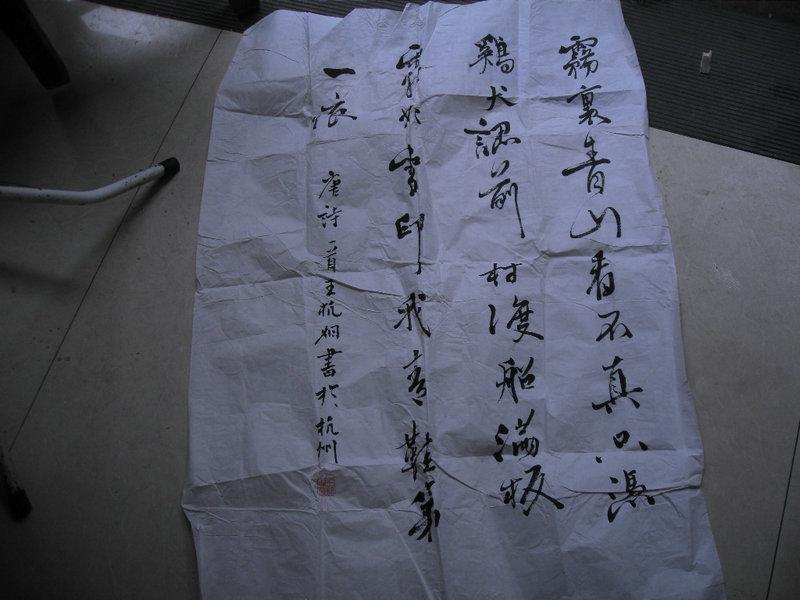 霧裏青山看不真只憑
鷄犬認前村渡船滿板
霜如雪印我青鞋第
一痕
唐詩一首王杭書於杭州